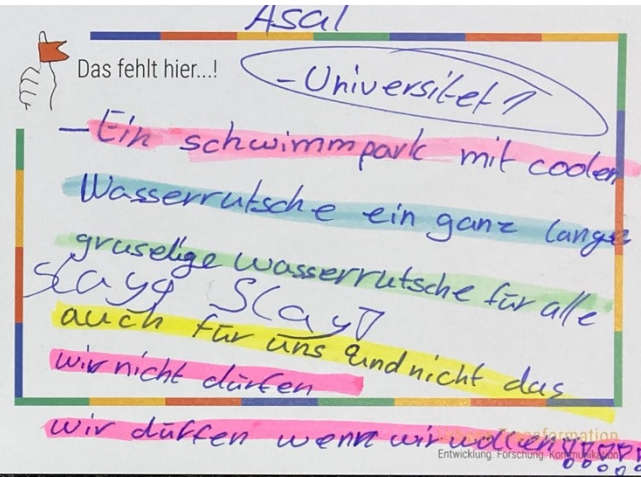 Asal
Das fehlt hier...!
- Universitet 1
- Ein schwimmpark mit coolen
Wasserrutsche ein ganz lange
gruselige wasserrutsche für alle
Slayy Slay
auch für uns und nicht das
wir nicht dürfen
wir düffen wenn wir wollen!!!!!!
Entwicklung. Forschung. Kommunikation.